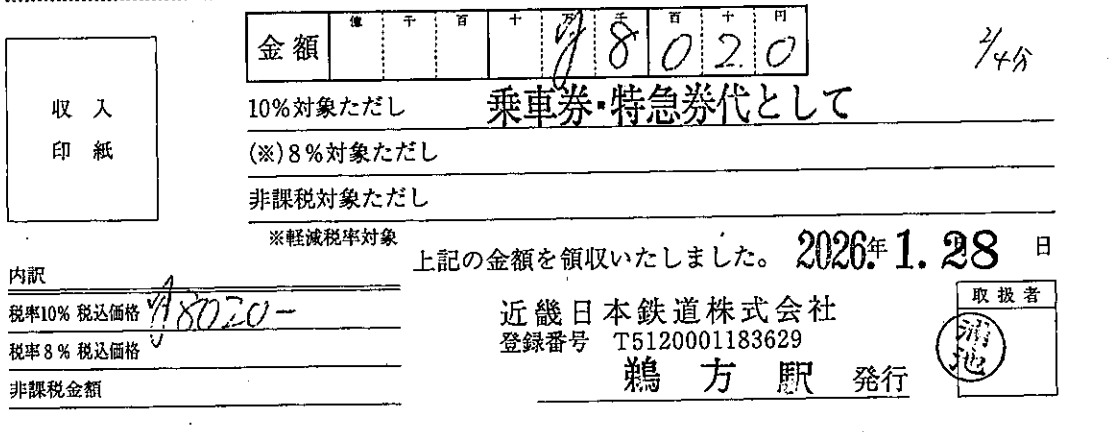 億 千 百 十 万 千 百 十 円
金額 ¥8020
2/4分
収入
印紙
10%対象ただし 乗車券・特急券代として
(※)8%対象ただし
非課税対象ただし
※軽減税率対象
上記の金額を領収いたしました。 2026年 1.28日
内訳
税率10% 税込価格 ¥8020-
税率8% 税込価格
非課税金額
近畿日本鉄道株式会社
登録番号 T5120001183629
鵜方駅 発行
取扱者